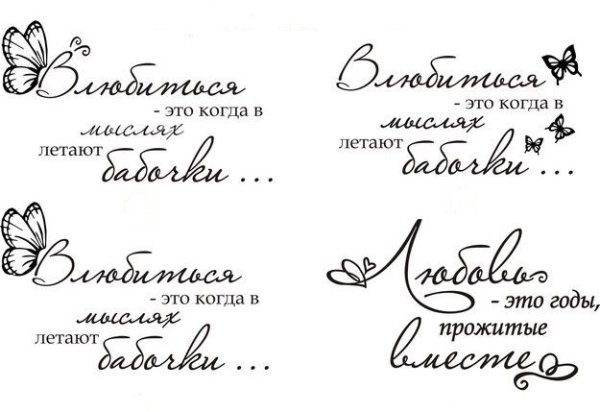 Влюбиться
- это когда в
мыслях
летают
бабочки ...
Влюбиться
- это когда в
мыслях
летают
бабочки ...
Влюбиться
- это когда в
мыслях
летают
бабочки ...
Любовь
- это годы,
прожитые
вместе